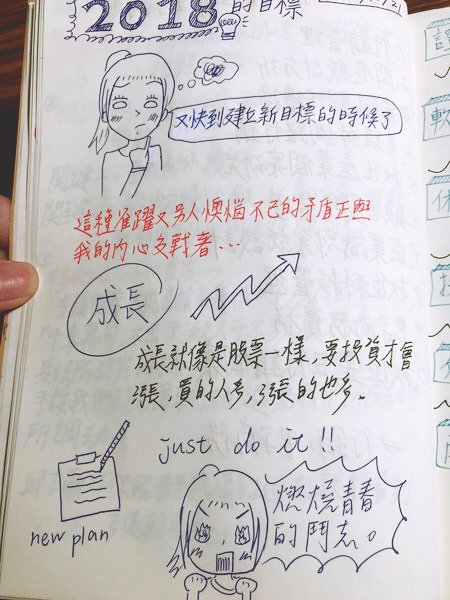 2018 的目標
又快到建立新目標的時候了
這種雀躍又另人懊惱不已的矛盾正與
我的內心交戰著...
成長
成長就像是股票一樣，要投資才會
漲，買的人多，漲的也多。
just do it!!
燃燒青春
的鬥志。
new plan